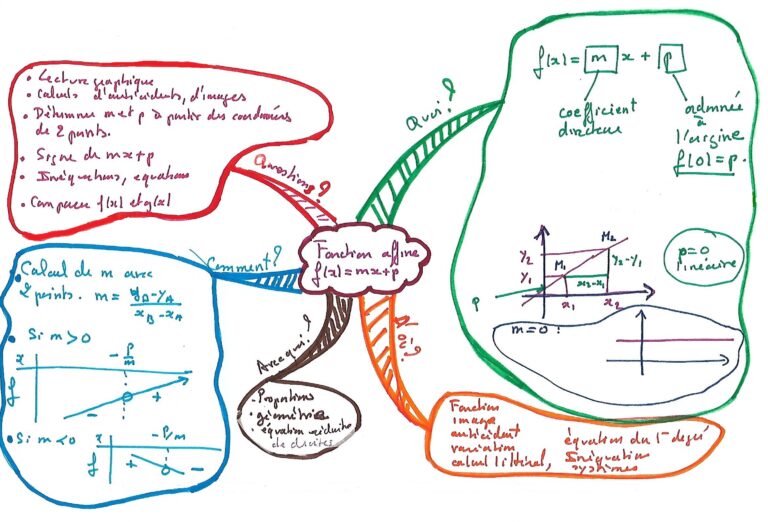 Fonction affine
f(x) = mx+p
Quoi?
f(x) = m x + p
coefficient
directeur
ordonnée
à
l'origine
f(0) = p.
M2
y2
M1
y2-y1
y1
x2-x1
p
x1
x2
p=0
linéaire
m=0 :
Questions?
• Lecture graphique
• Calculs d'antécédents, d'images
• Déterminer m et p à partir des coordonnées
de 2 points.
• Signe de mx+p
• Inéquations, equations
• Comparer f(x) et g(x)
Comment?
• Calcul de m avec
2 points. m = yB-yA / xB-xA
• Si m>0
x
-p/m
f
-
o
+
• Si m<0
x
-p/m
f
+
o
-
Avec qui?
• Proportions
• géométrie
• équation réduite
de droites
Où?
Fonction
image
antécédent
variation
calcul littéral,
équation du 1er degré
Inéquation
systèmes